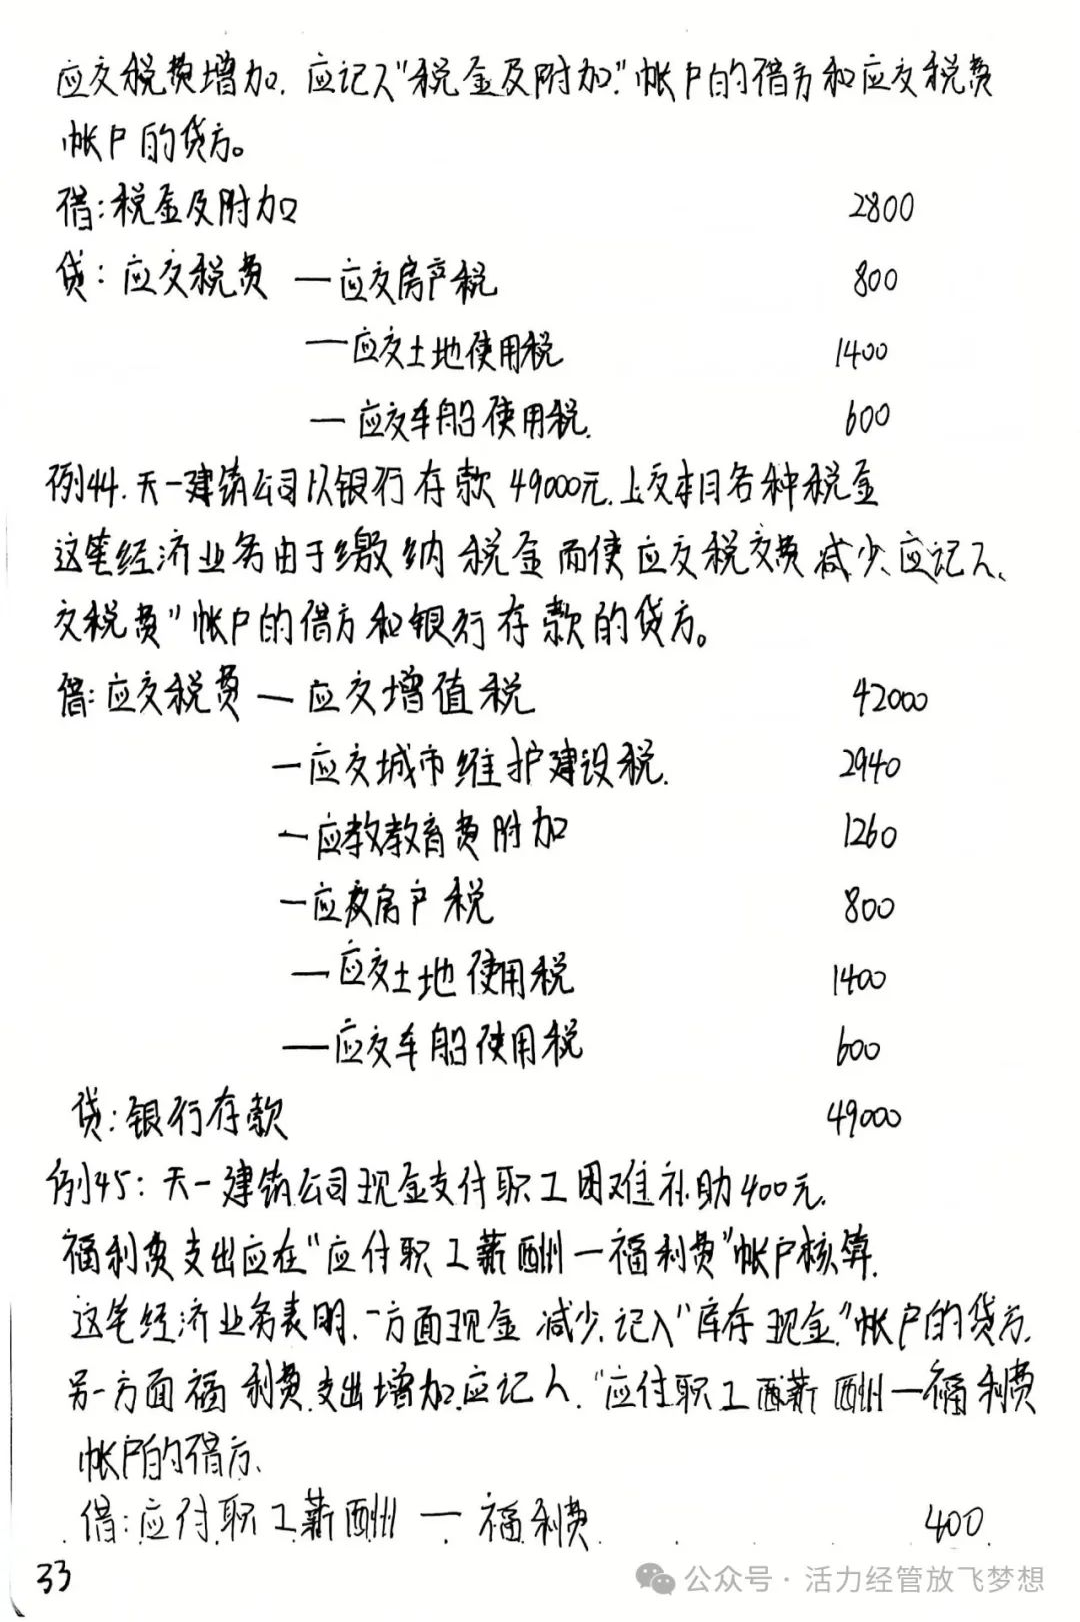 应交税费增加. 应记入"税金及附加"帐户的借方和应交税费
帐户的贷方。
借:税金及附加 2800
贷: 应交税费 —应交房产税 800
—应交土地使用税 1400
— 应交车船使用税. 600
例44. 天一建筑公司以银行存款 49000元.上交本月各种税金
这笔经济业务由于缴纳税金而使应交税交费减少、应记入、
交税费"帐户的借方和银行存款的贷方。
借:应交税费 — 应交增值税 42000
—应交城市维护建设税. 2940
—应教教育费附加 1260
—应交房产税 800
—应交土地使用税 1400
—应交车船使用税 600
贷:银行存款 49000
例45: 天一建筑公司现金支付职工困难补助400元.
福利费支出应在"应付职工薪酬—福利费"帐户核算.
这笔经济业务表明.一方面现金减少.记入"库存现金"帐户的贷方.
另一方面福利费支出增加.应记入"应付职工酬薪酬—福利费
帐户的借方、
借:应付职工薪酬 — 福利费 400
33
公众号·活力经管放飞梦想